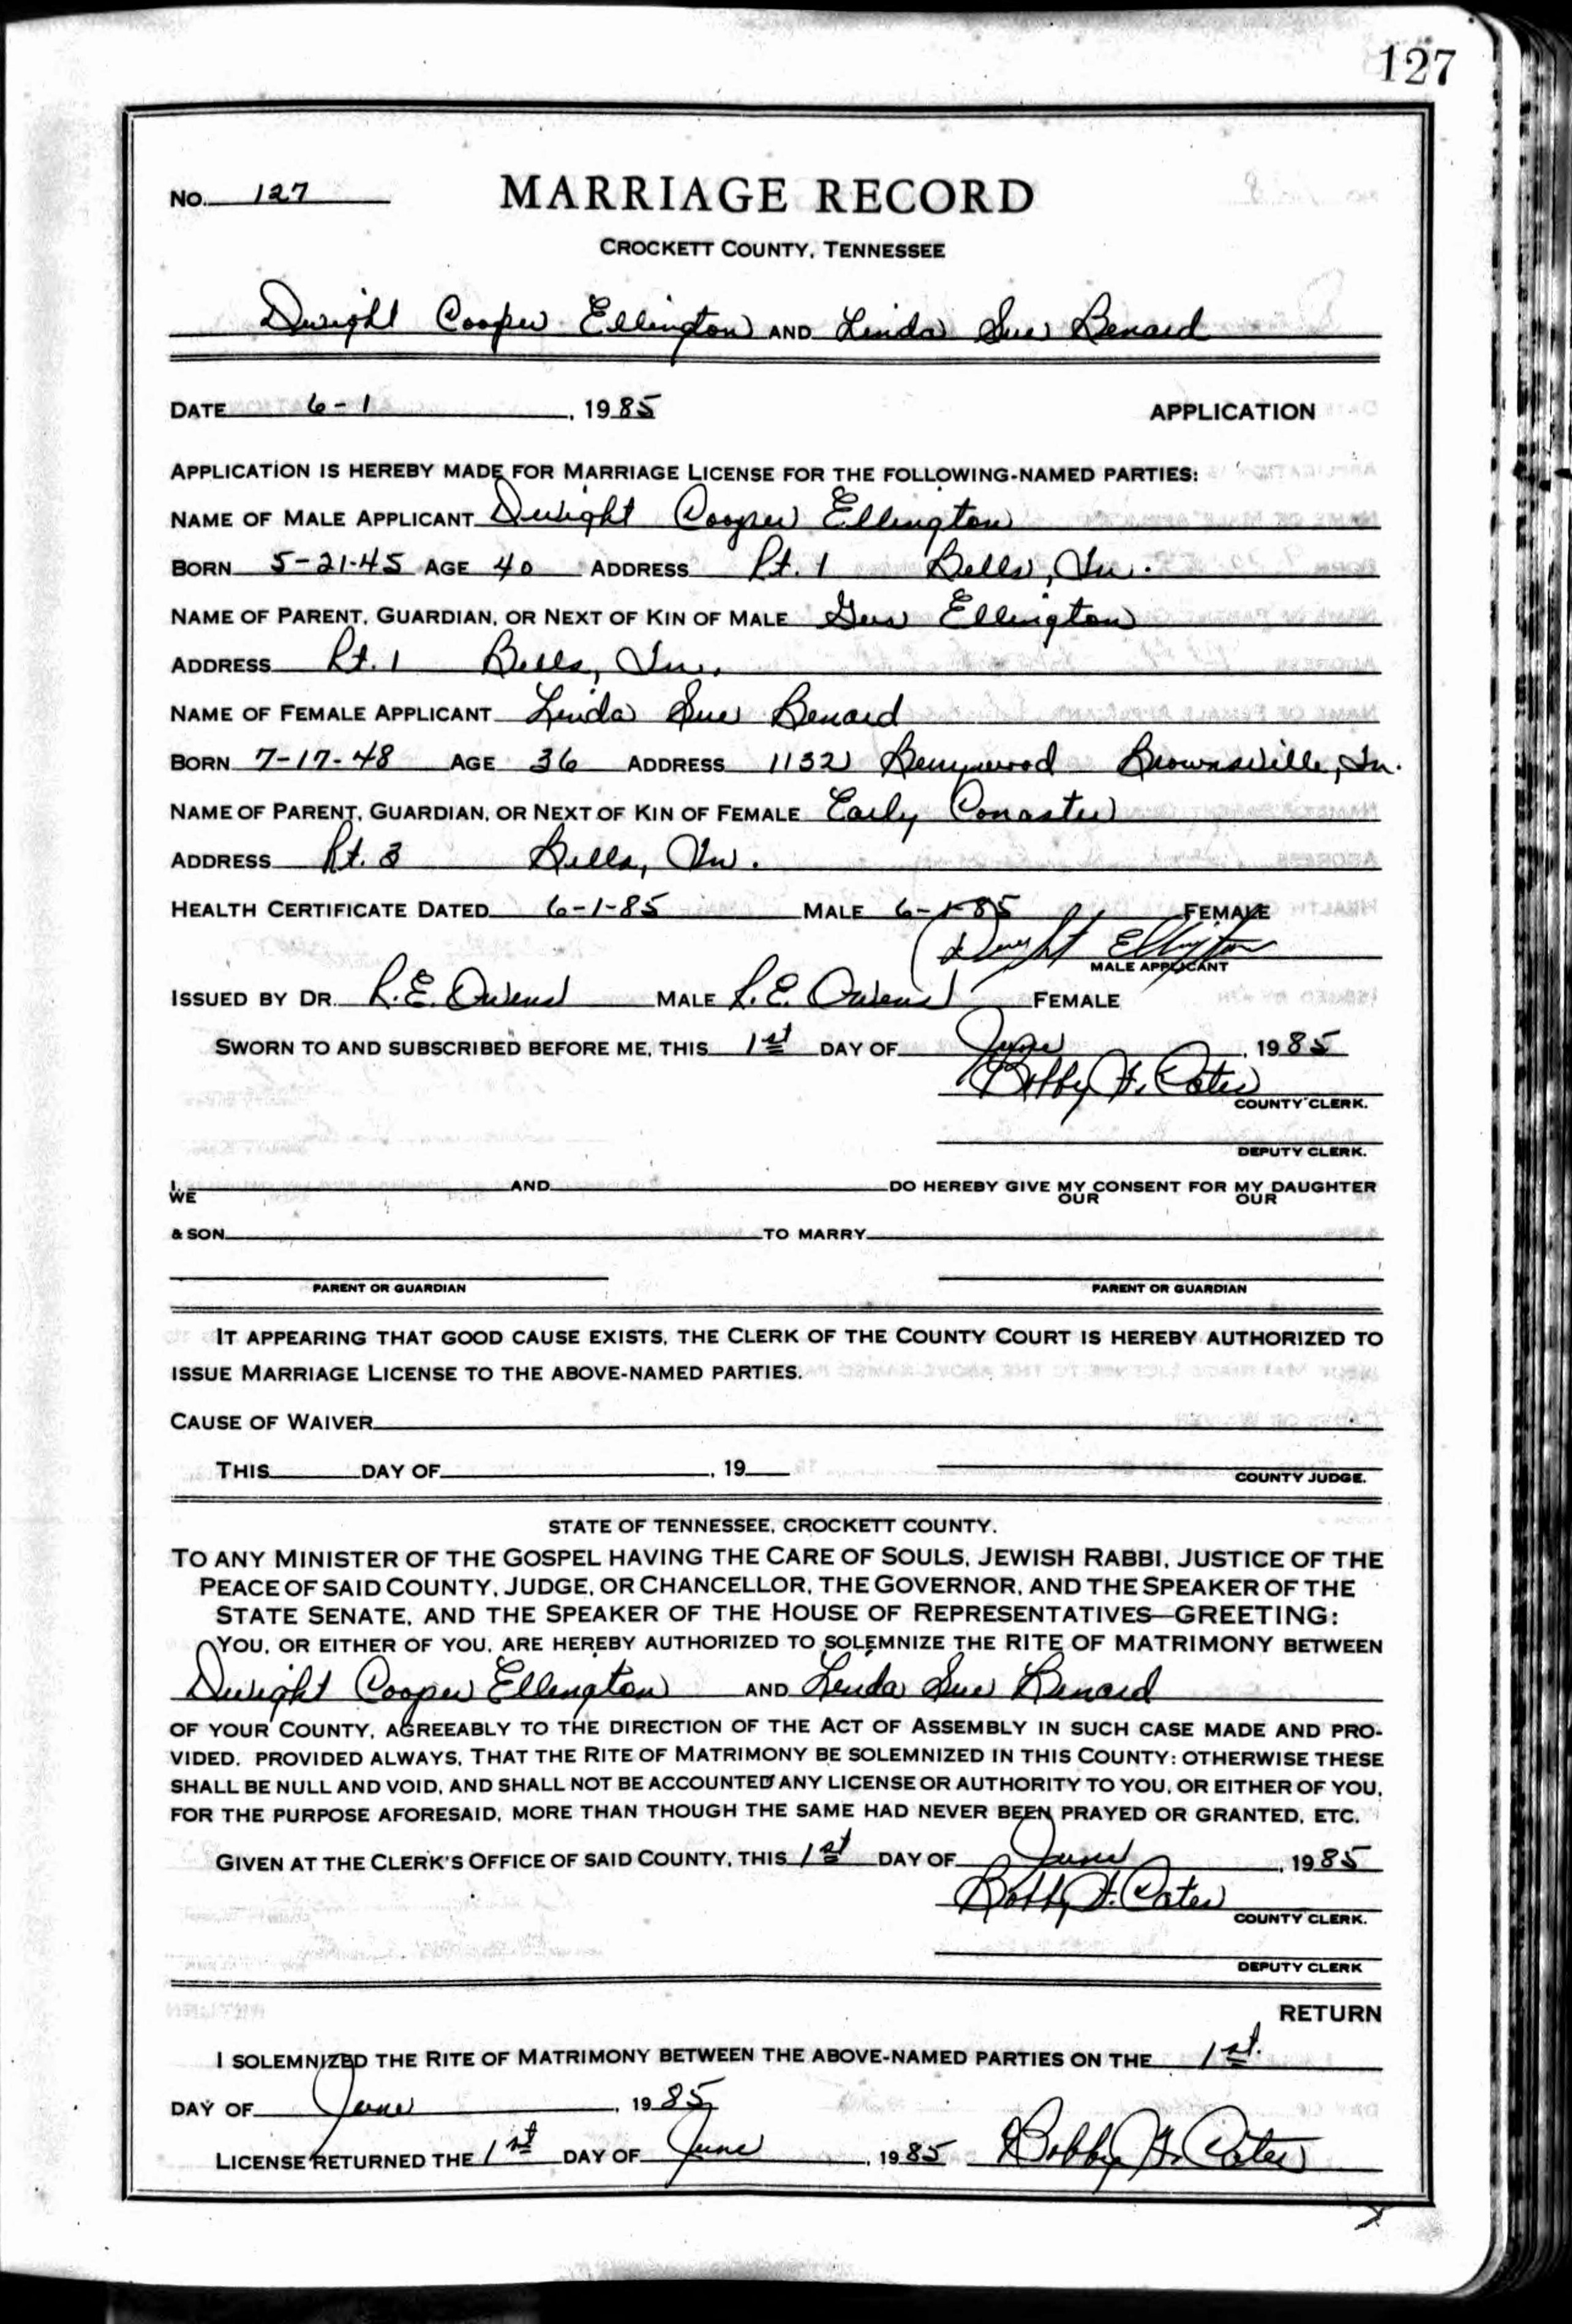 127
No. 127 MARRIAGE RECORD
CROCKETT COUNTY, TENNESSEE
Dwight Cooper Ellington AND Linda Sue Benard
DATE 6-1, 1985 APPLICATION
APPLICATION IS HEREBY MADE FOR MARRIAGE LICENSE FOR THE FOLLOWING-NAMED PARTIES:
NAME OF MALE APPLICANT Dwight Cooper Ellington
BORN 5-21-45 AGE 40 ADDRESS Rt. 1 Bells, Tn.
NAME OF PARENT, GUARDIAN, OR NEXT OF KIN OF MALE Gus Ellington
ADDRESS Rt. 1 Bells, Tn.
NAME OF FEMALE APPLICANT Linda Sue Benard
BORN 7-17-48 AGE 36 ADDRESS 1132 Berrywood Brownsville, Tn.
NAME OF PARENT, GUARDIAN, OR NEXT OF KIN OF FEMALE Early Conaster
ADDRESS Rt. 3 Bells, Tn.
HEALTH CERTIFICATE DATED 6-1-85 MALE 6-1-85 FEMALE
Dwight Ellington
MALE APPLICANT
ISSUED BY DR. R.E. Owens MALE R.E. Owens FEMALE
SWORN TO AND SUBSCRIBED BEFORE ME, THIS 1st DAY OF June, 1985
Bobby F. Cates
COUNTY CLERK.
DEPUTY CLERK.
I, WE AND DO HEREBY GIVE MY OUR CONSENT FOR MY OUR DAUGHTER
& SON TO MARRY
PARENT OR GUARDIAN PARENT OR GUARDIAN
IT APPEARING THAT GOOD CAUSE EXISTS, THE CLERK OF THE COUNTY COURT IS HEREBY AUTHORIZED TO
ISSUE MARRIAGE LICENSE TO THE ABOVE-NAMED PARTIES.
CAUSE OF WAIVER
THIS DAY OF , 19
COUNTY JUDGE.
STATE OF TENNESSEE, CROCKETT COUNTY.
TO ANY MINISTER OF THE GOSPEL HAVING THE CARE OF SOULS, JEWISH RABBI, JUSTICE OF THE
PEACE OF SAID COUNTY, JUDGE, OR CHANCELLOR, THE GOVERNOR, AND THE SPEAKER OF THE
STATE SENATE, AND THE SPEAKER OF THE HOUSE OF REPRESENTATIVES—GREETING:
YOU, OR EITHER OF YOU, ARE HEREBY AUTHORIZED TO SOLEMNIZE THE RITE OF MATRIMONY BETWEEN
Dwight Cooper Ellington AND Linda Sue Benard
OF YOUR COUNTY, AGREEABLY TO THE DIRECTION OF THE ACT OF ASSEMBLY IN SUCH CASE MADE AND PRO-
VIDED. PROVIDED ALWAYS, THAT THE RITE OF MATRIMONY BE SOLEMNIZED IN THIS COUNTY: OTHERWISE THESE
SHALL BE NULL AND VOID, AND SHALL NOT BE ACCOUNTED ANY LICENSE OR AUTHORITY TO YOU, OR EITHER OF YOU,
FOR THE PURPOSE AFORESAID, MORE THAN THOUGH THE SAME HAD NEVER BEEN PRAYED OR GRANTED, ETC.
GIVEN AT THE CLERK'S OFFICE OF SAID COUNTY, THIS 1st DAY OF June, 1985
Bobby F. Cates
COUNTY CLERK.
DEPUTY CLERK
RETURN
I SOLEMNIZED THE RITE OF MATRIMONY BETWEEN THE ABOVE-NAMED PARTIES ON THE 1st.
DAY OF June, 1985
LICENSE RETURNED THE 1st DAY OF June, 1985 Bobby F. Cates